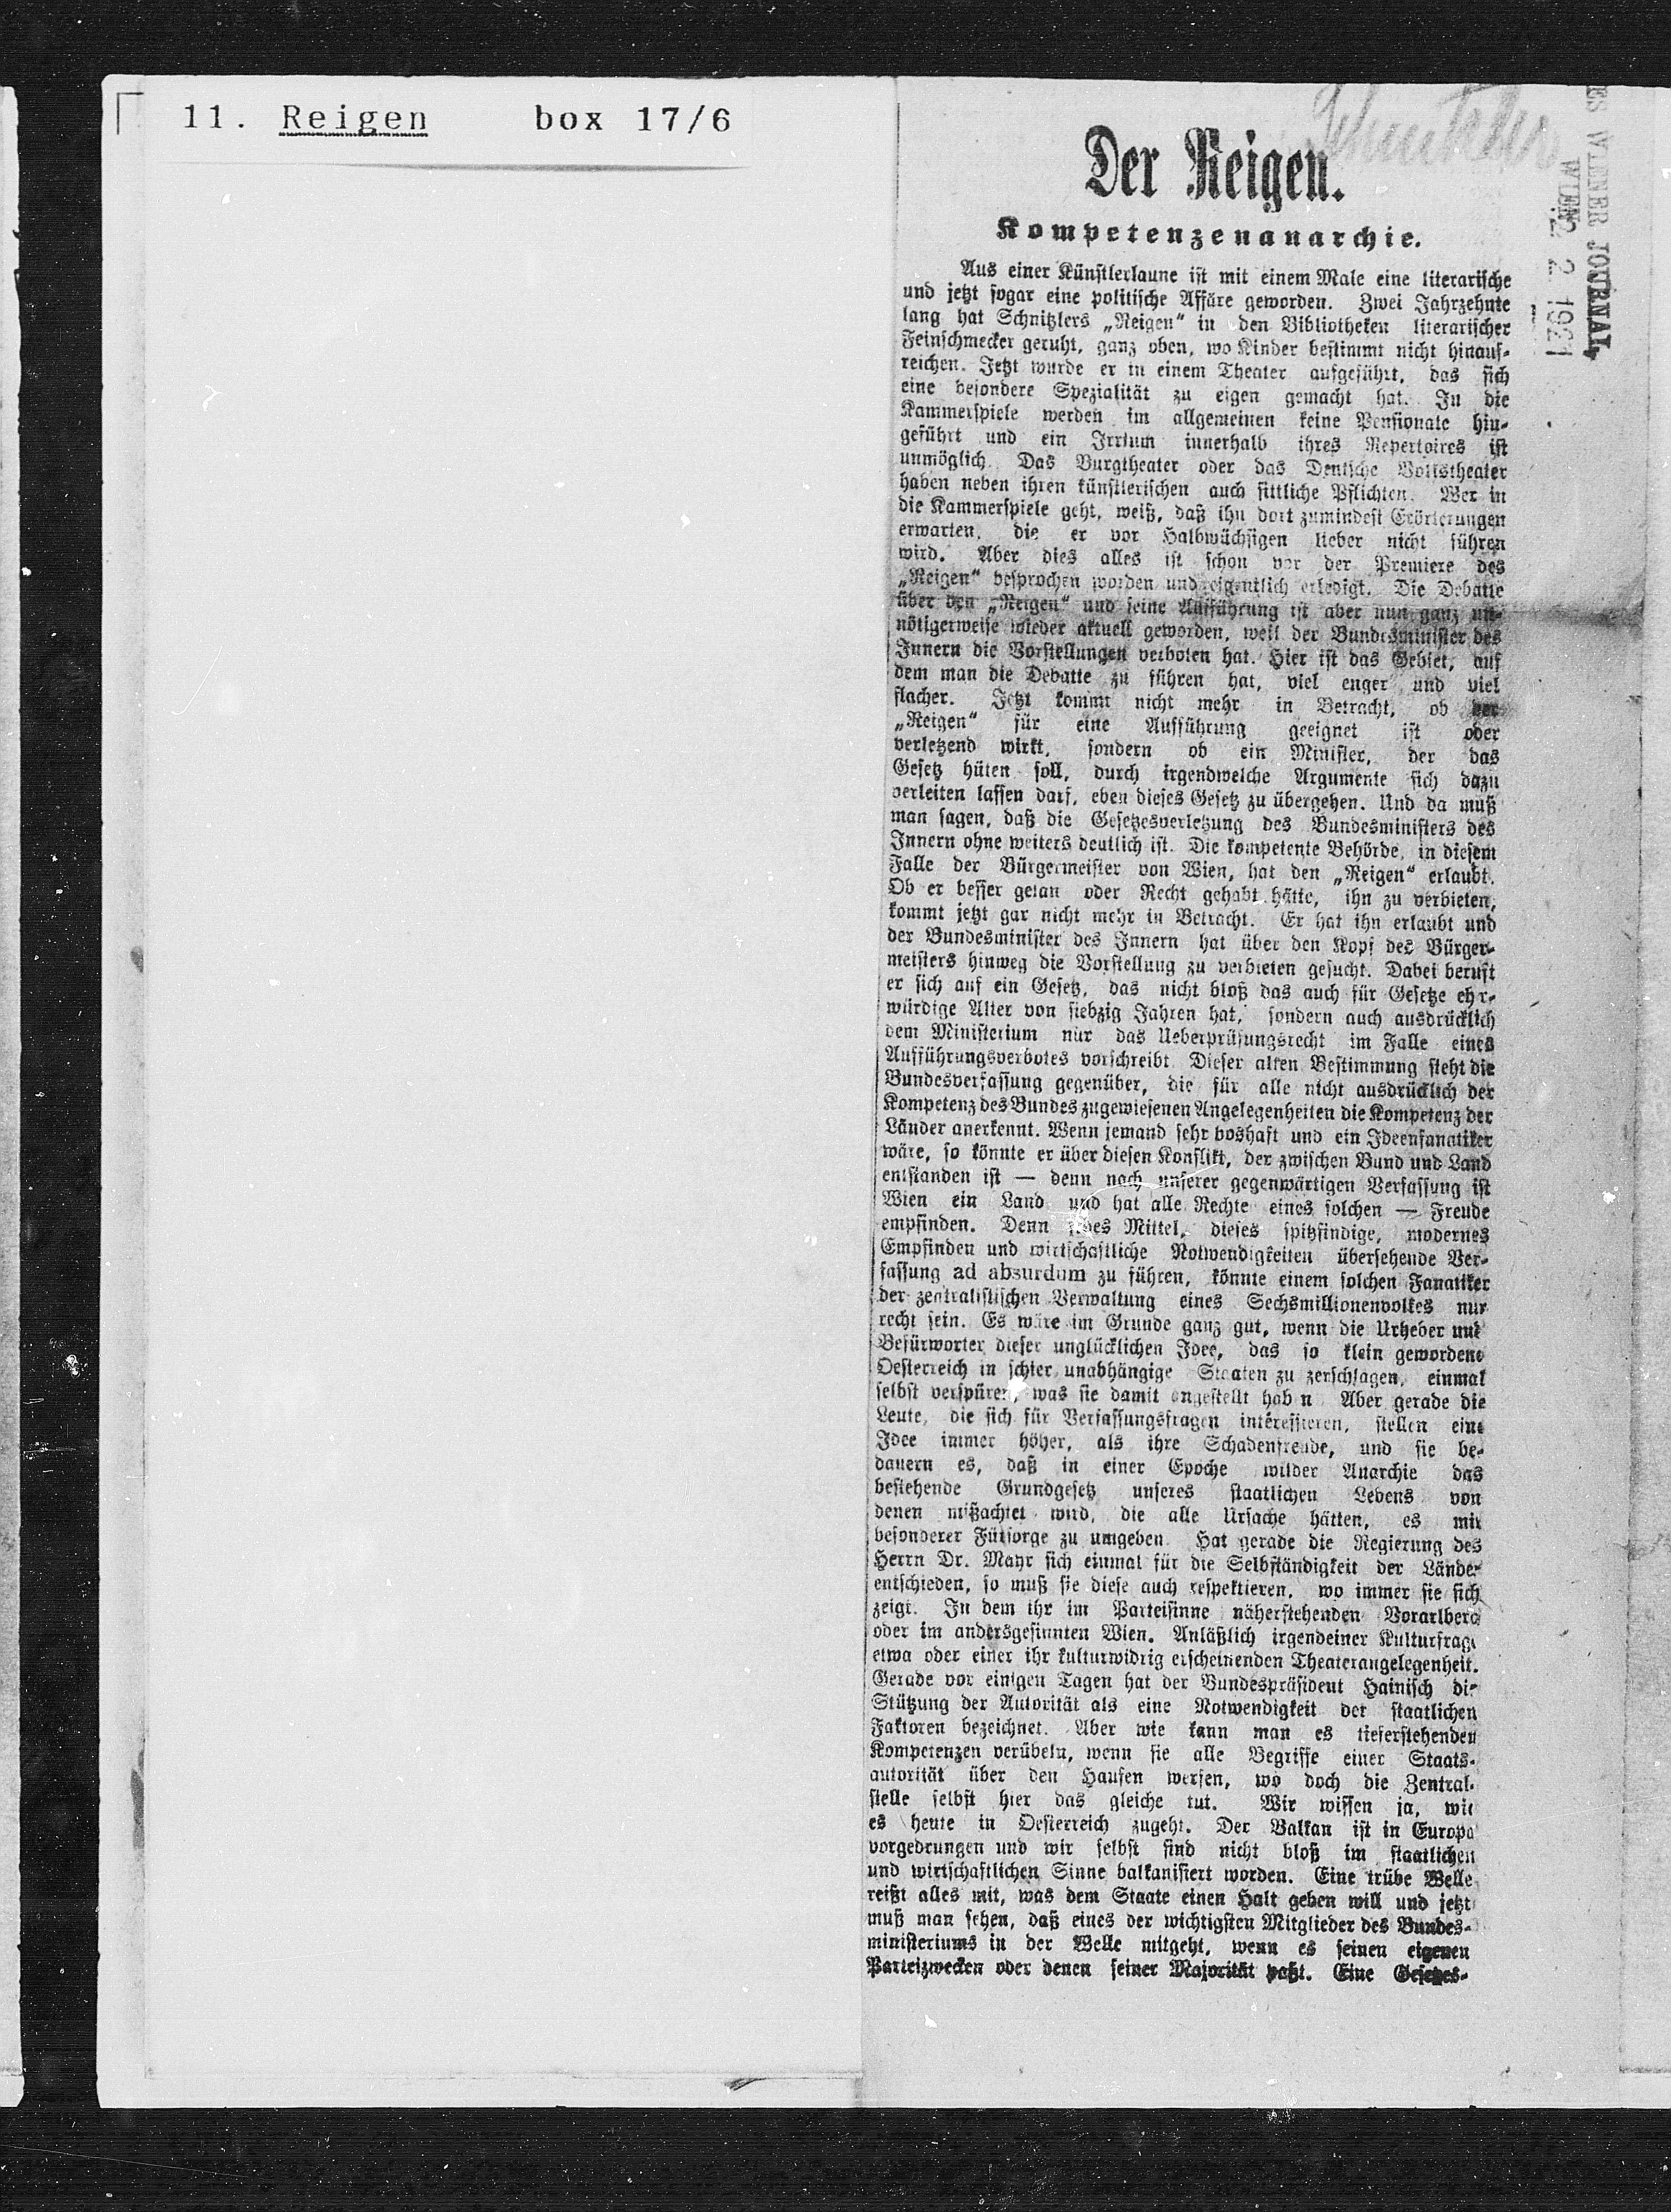 11. Reigen box 17/6
Schnitzler
ES WIENER JOURNAL,
WIEN
2 2. 1921
Der Reigen.
Kompetenzenanarchie.
Aus einer Künstlerlaune ist mit einem Male eine literarische
und jetzt sogar eine politische Affäre geworden. Zwei Jahrzehnte
lang hat Schnitzlers „Reigen“ in den Bibliotheken literarischer
Feinschmecker geruht, ganz oben, wo Kinder bestimmt nicht hinauf-
reichen. Jetzt wurde er in einem Theater aufgeführt, das sich
eine besondere Spezialität zu eigen gemacht hat. In die
Kammerspiele werden im allgemeinen keine Pensionate hin-
geführt und ein Irrtum innerhalb ihres Repertoires ist
unmöglich. Das Burgtheater oder das Deutsche Volkstheater
haben neben ihren künstlerischen auch sittliche Pflichten. Wer in
die Kammerspiele geht, weiß, daß ihn dort zumindest Erörterungen
erwarten, die er vor Halbwüchsigen lieber nicht führen
wird. Aber dies alles ist schon vor der Premiere des
„Reigen“ besprochen worden und eigentlich erledigt. Die Debatte
über den „Reigen“ und seine Aufführung ist aber nun ganz un-
nötigerweise wieder aktuell geworden, weil der Bundesminister des
Innern die Vorstellungen verboten hat. Hier ist das Gebiet, auf
dem man die Debatte zu führen hat, viel enger und viel
flacher. Jetzt kommt nicht mehr in Betracht, ob der
„Reigen“ für eine Aufführung geeignet ist oder
verletzend wirkt, sondern ob ein Minister, der das
Gesetz hüten soll, durch irgendwelche Argumente sich dazu
verleiten lassen darf, eben dieses Gesetz zu übergehen. Und da muß
man sagen, daß die Gesetzesverletzung des Bundesministers des
Innern ohne weiters deutlich ist. Die kompetente Behörde, in diesem
Falle der Bürgermeister von Wien, hat den „Reigen“ erlaubt.
Ob er besser getan oder Recht gehabt hätte, ihn zu verbieten,
kommt jetzt gar nicht mehr in Betracht. Er hat ihn erlaubt und
der Bundesminister des Innern hat über den Kopf des Bürger-
meisters hinweg die Vorstellung zu verbieten gesucht. Dabei beruft
er sich auf ein Gesetz, das nicht bloß das auch für Gesetze ehr-
würdige Alter von siebzig Jahren hat, sondern auch ausdrücklich
dem Ministerium nur das Ueberprüfungsrecht im Falle eines
Aufführungsverbotes vorschreibt. Dieser alten Bestimmung steht die
Bundesverfassung gegenüber, die für alle nicht ausdrücklich der
Kompetenz des Bundes zugewiesenen Angelegenheiten die Kompetenz der
Länder anerkennt. Wenn jemand sehr boshaft und ein Ideenfanatiker
wäre, so könnte er über diesen Konflikt, der zwischen Bund und Land
entstanden ist — denn nach unserer gegenwärtigen Verfassung ist
Wien ein Land und hat alle Rechte eines solchen — Freude
empfinden. Denn jedes Mittel, dieses spitzfindige, modernes
Empfinden und wirtschaftliche Notwendigkeiten übersehende Ver-
fassung ad absurdum zu führen, könnte einem solchen Fanatiker
der zentralistischen Verwaltung eines Sechsmillionenvolkes nur
recht sein. Es wäre im Grunde ganz gut, wenn die Urheber und
Befürworter dieser unglücklichen Idee, das so klein gewordene
Oesterreich in schier unabhängige Staaten zu zerschlagen, einmal
selbst verspüren, was sie damit angestellt hab n Aber gerade die
Leute, die sich für Verfassungsfragen interessieren, stellen eine
Idee immer höher, als ihre Schadenfreude, und sie be-
dauern es, daß in einer Epoche wilder Anarchie das
bestehende Grundgesetz unseres staatlichen Lebens von
denen mißachtet wird, die alle Ursache hätten, es mit
besonderer Fürsorge zu umgeben. Hat gerade die Regierung des
Herrn Dr. Mayr sich einmal für die Selbständigkeit der Länder
entschieden, so muß sie diese auch respektieren, wo immer sie sich
zeigt. In dem ihr im Parteisinne näherstehenden Vorarlberg
oder im andersgesinnten Wien. Anläßlich irgendeiner Kulturfrage
etwa oder einer ihr kulturwidrig erscheinenden Theaterangelegenheit.
Gerade vor einigen Tagen hat der Bundespräsident Hainisch die
Stützung der Autorität als eine Notwendigkeit der staatlichen
Faktoren bezeichnet. Aber wie kann man es tieferstehenden
Kompetenzen verübeln, wenn sie alle Begriffe einer Staats-
autorität über den Haufen werfen, wo doch die Zentral-
stelle selbst hier das gleiche tut. Wir wissen ja, wie
es heute in Oesterreich zugeht. Der Balkan ist in Europa
vorgedrungen und wir selbst sind nicht bloß im staatlichen
und wirtschaftlichen Sinne balkanisiert worden. Eine trübe Welle
reißt alles mit, was dem Staate einen Halt geben will und jetzt
muß man sehen, daß eines der wichtigsten Mitglieder des Bundes-
ministeriums in der Welle mitgeht, wenn es seinen eigenen
Parteizwecken oder denen seiner Majorität paßt. Eine Gesetzes-